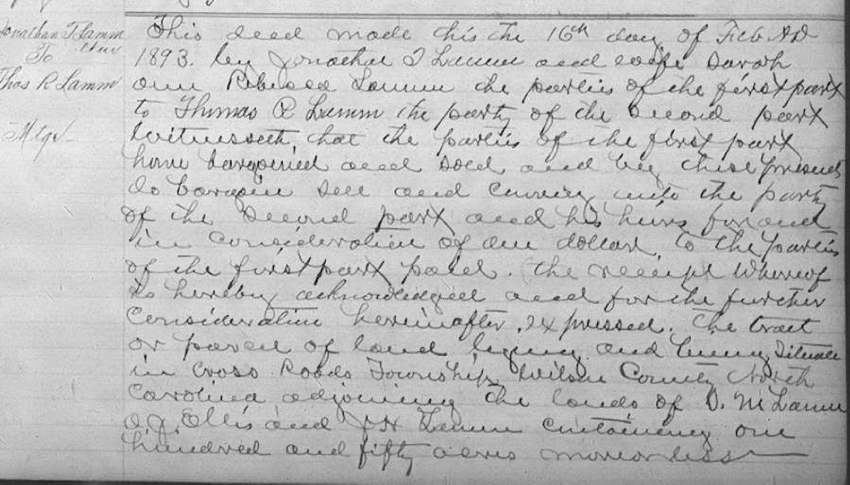 Jonathan T Lamm
To
Thos R Lamm
Mtge
This deed made this the 16th day of Feb AD
1893. by Jonathan T Lamm and wife Sarah
ann Lamm the parties of the first part
to Thomas R Lamm the party of the second part
Witnesseth, that the parties of the first part
have bargained and sold and by these presents
do bargain sell and convey unto the party
of the second part and his heirs for and
in consideration of one dollar, to the parties
of the first part paid. the receipt whereof
is hereby acknowledged and for the further
consideration hereinafter expressed. The tract
or parcel of land lying and being situate
in Cross Roads Township, Wilson County North
Carolina adjoining the lands of D. M Lamm
Ellis and Lamm containing one
hundred and fifty acres more or less